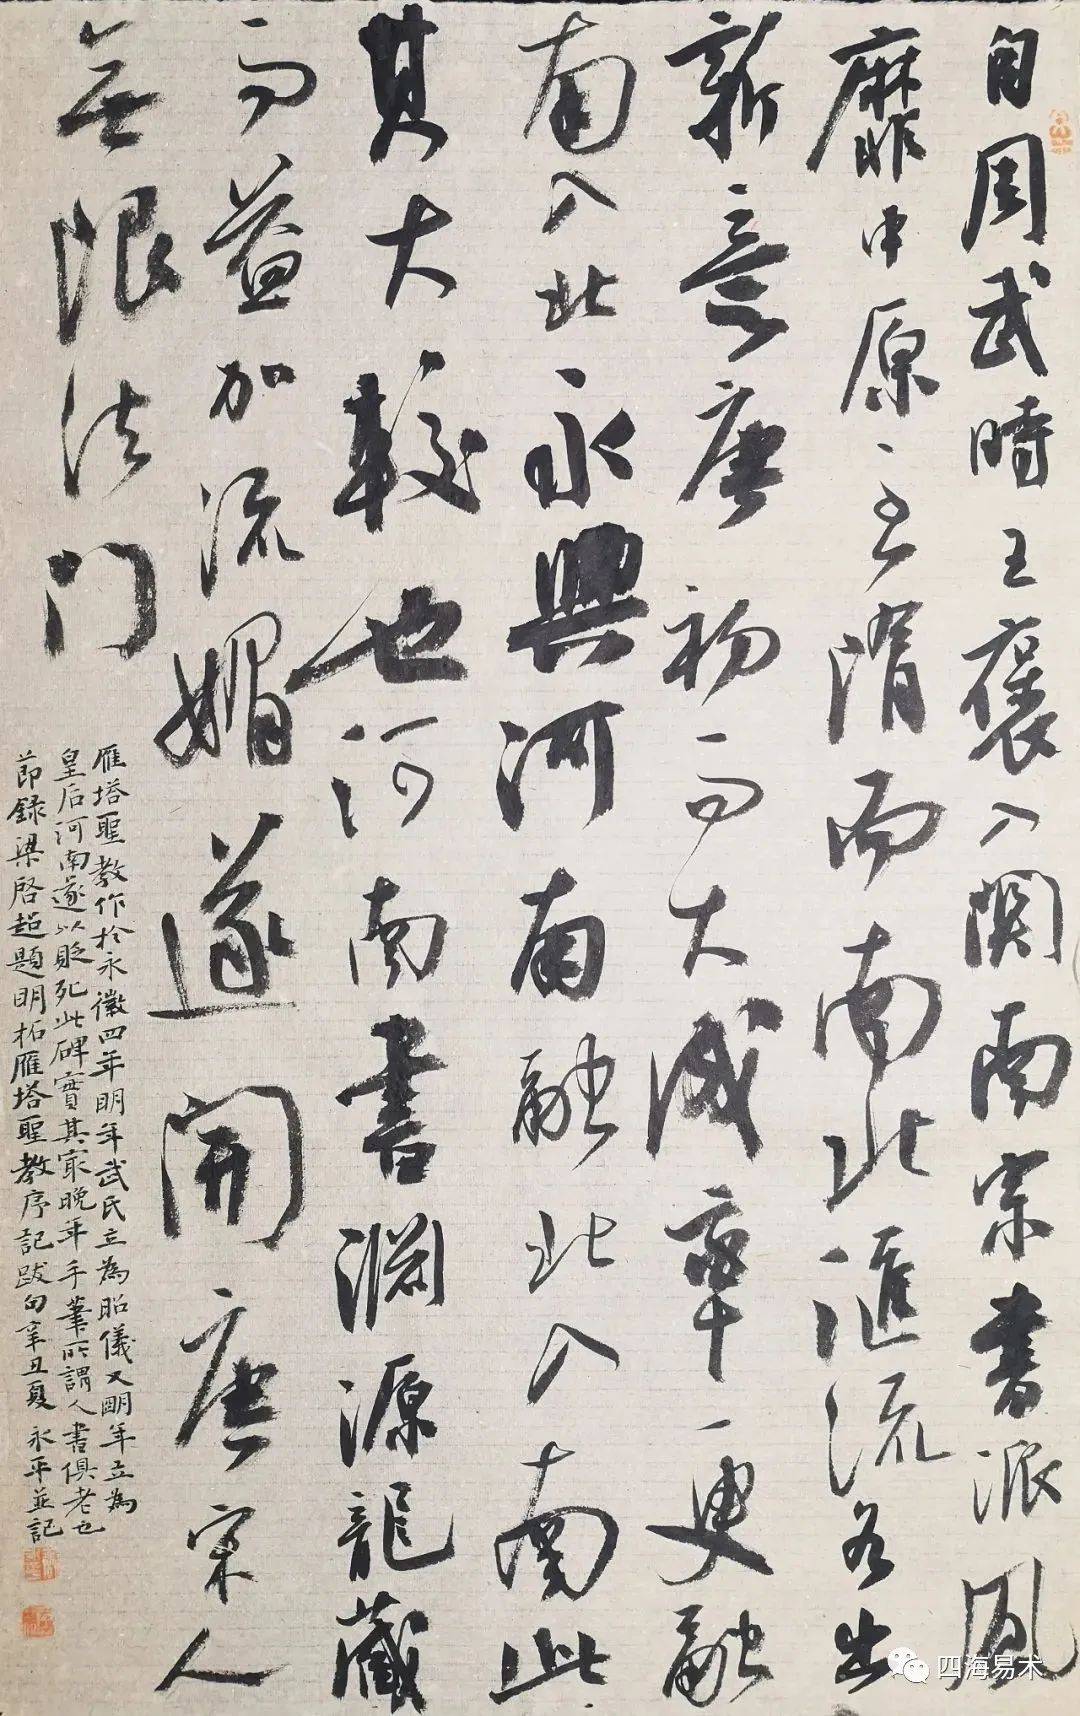 自周武時王褒入關南宗書派風
靡中原之至隋而南北匯流多出
新意唐初而大成率更融
南入北永興河南融北入南此
其大較也河南書淵源龍藏
而益加流媚遂開唐宋人
無限法門
雁塔聖教作於永徽四年明年武氏立為昭儀又明年立為
皇后河南遂以貶死此碑實其最晚年手筆所謂人書俱老也
節錄梁啓超題明拓雁塔聖教序記跋句辛丑夏永平並記
四海易术